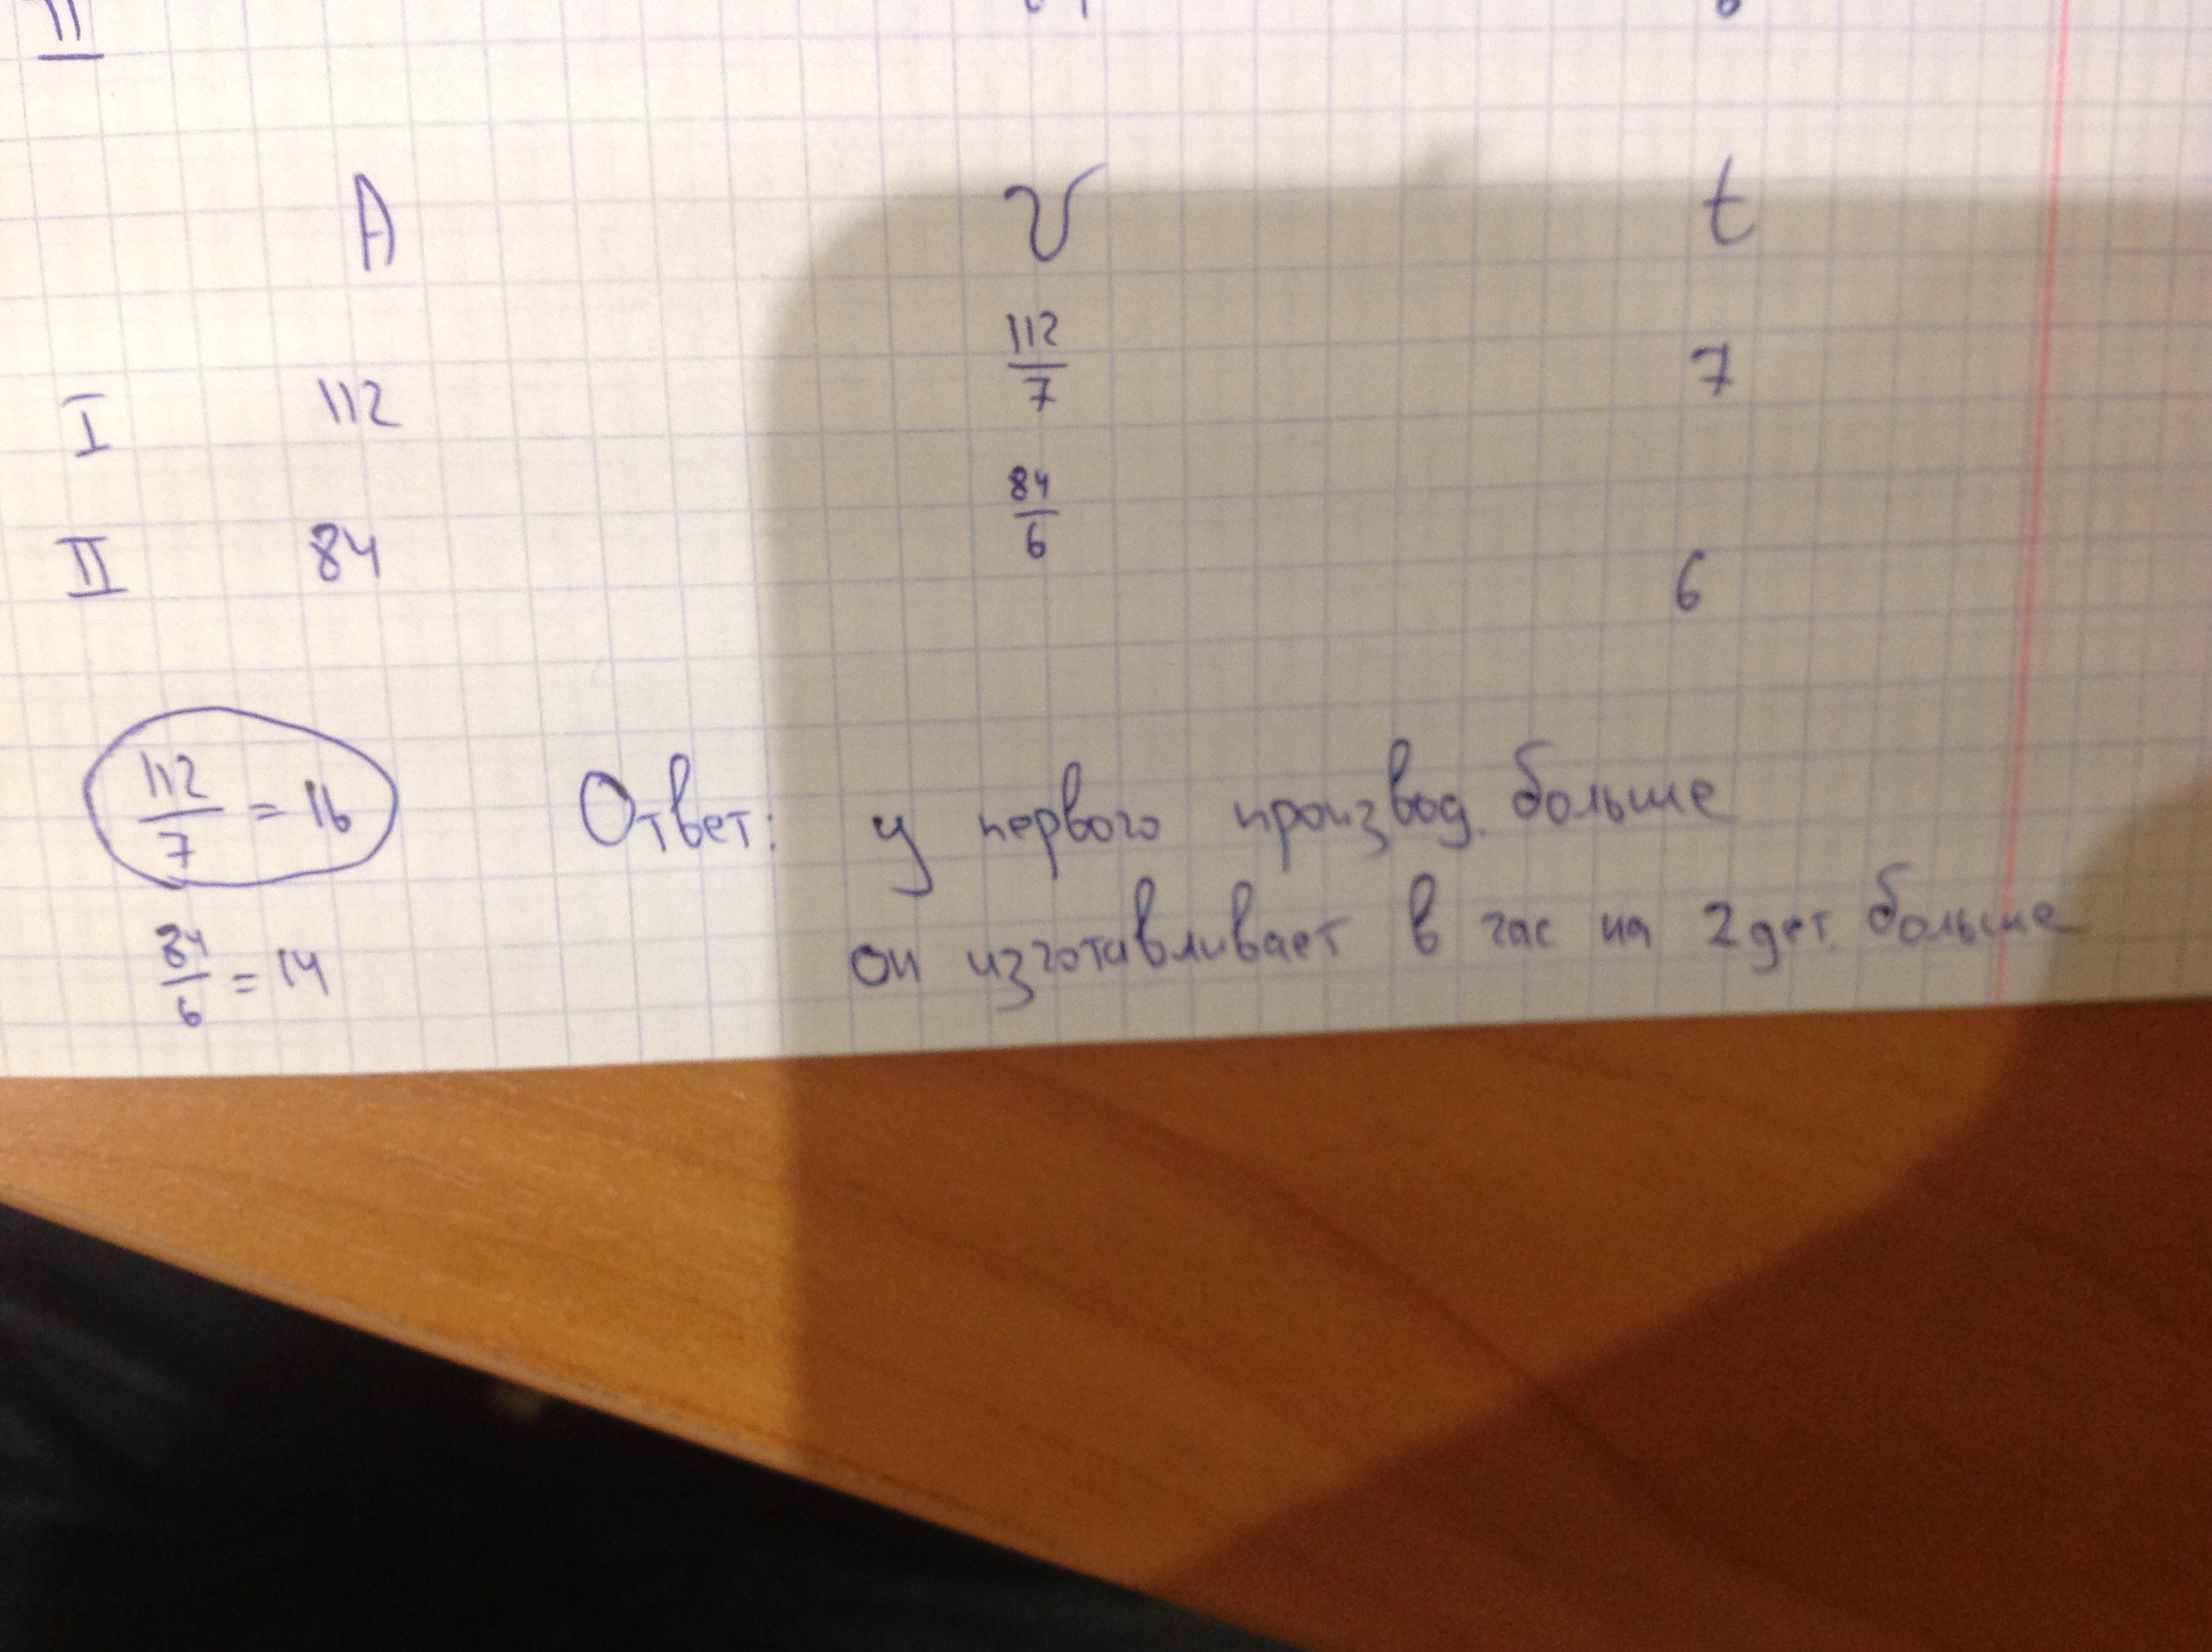 II
A v t
I 112 112/7 7
II 84 84/6 6
112/7 = 16
84/6 = 14
Ответ: у первого производ. больше
он изготавливает в час на 2 дет. больше